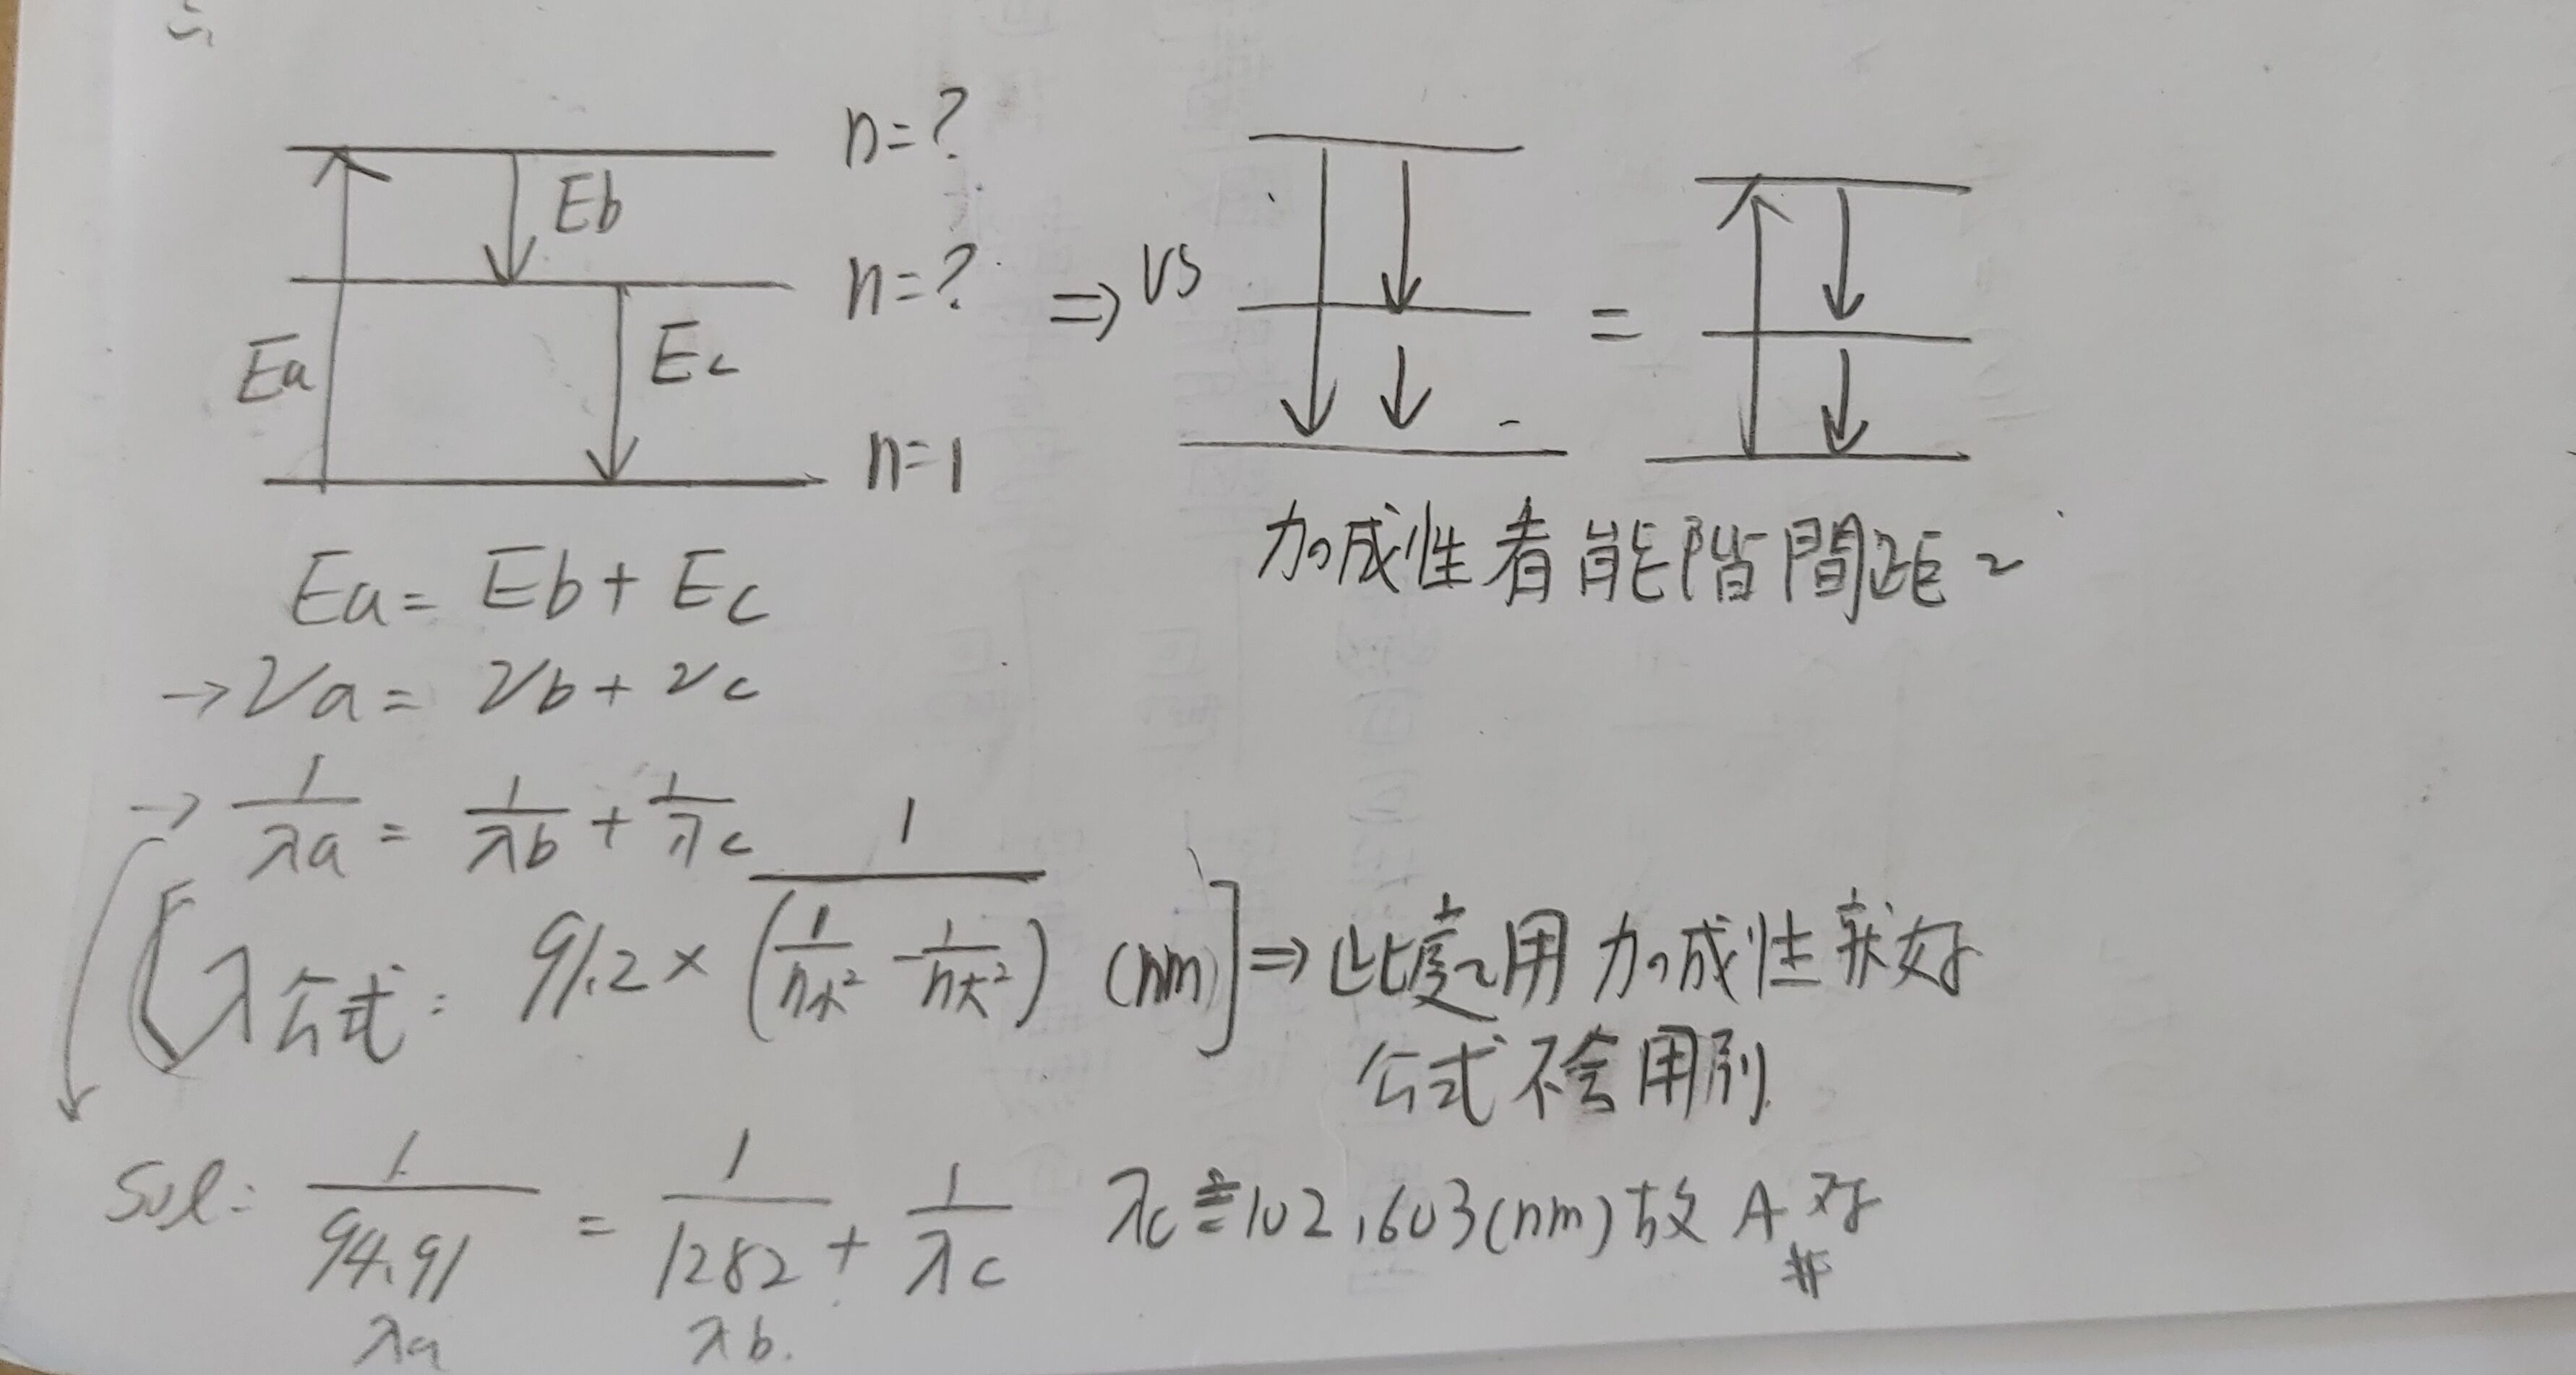 二、
n=?
Eb
n=?
Ea
Ec
n=1
⇒ VS
=
Ea = Eb + Ec
加成性看能階間距~
→ νa = νb + νc
→ 1/λa = 1/λb + 1/λc
[λ公式: 91.2 × 1/(1/n小² - 1/n大²) (nm)] ⇒ 此處用加成性就好
公式不會用到
Sol: 1/94.91 = 1/1282 + 1/λc λc ≒ 102.603(nm) 故 A 對 #
λa λb.